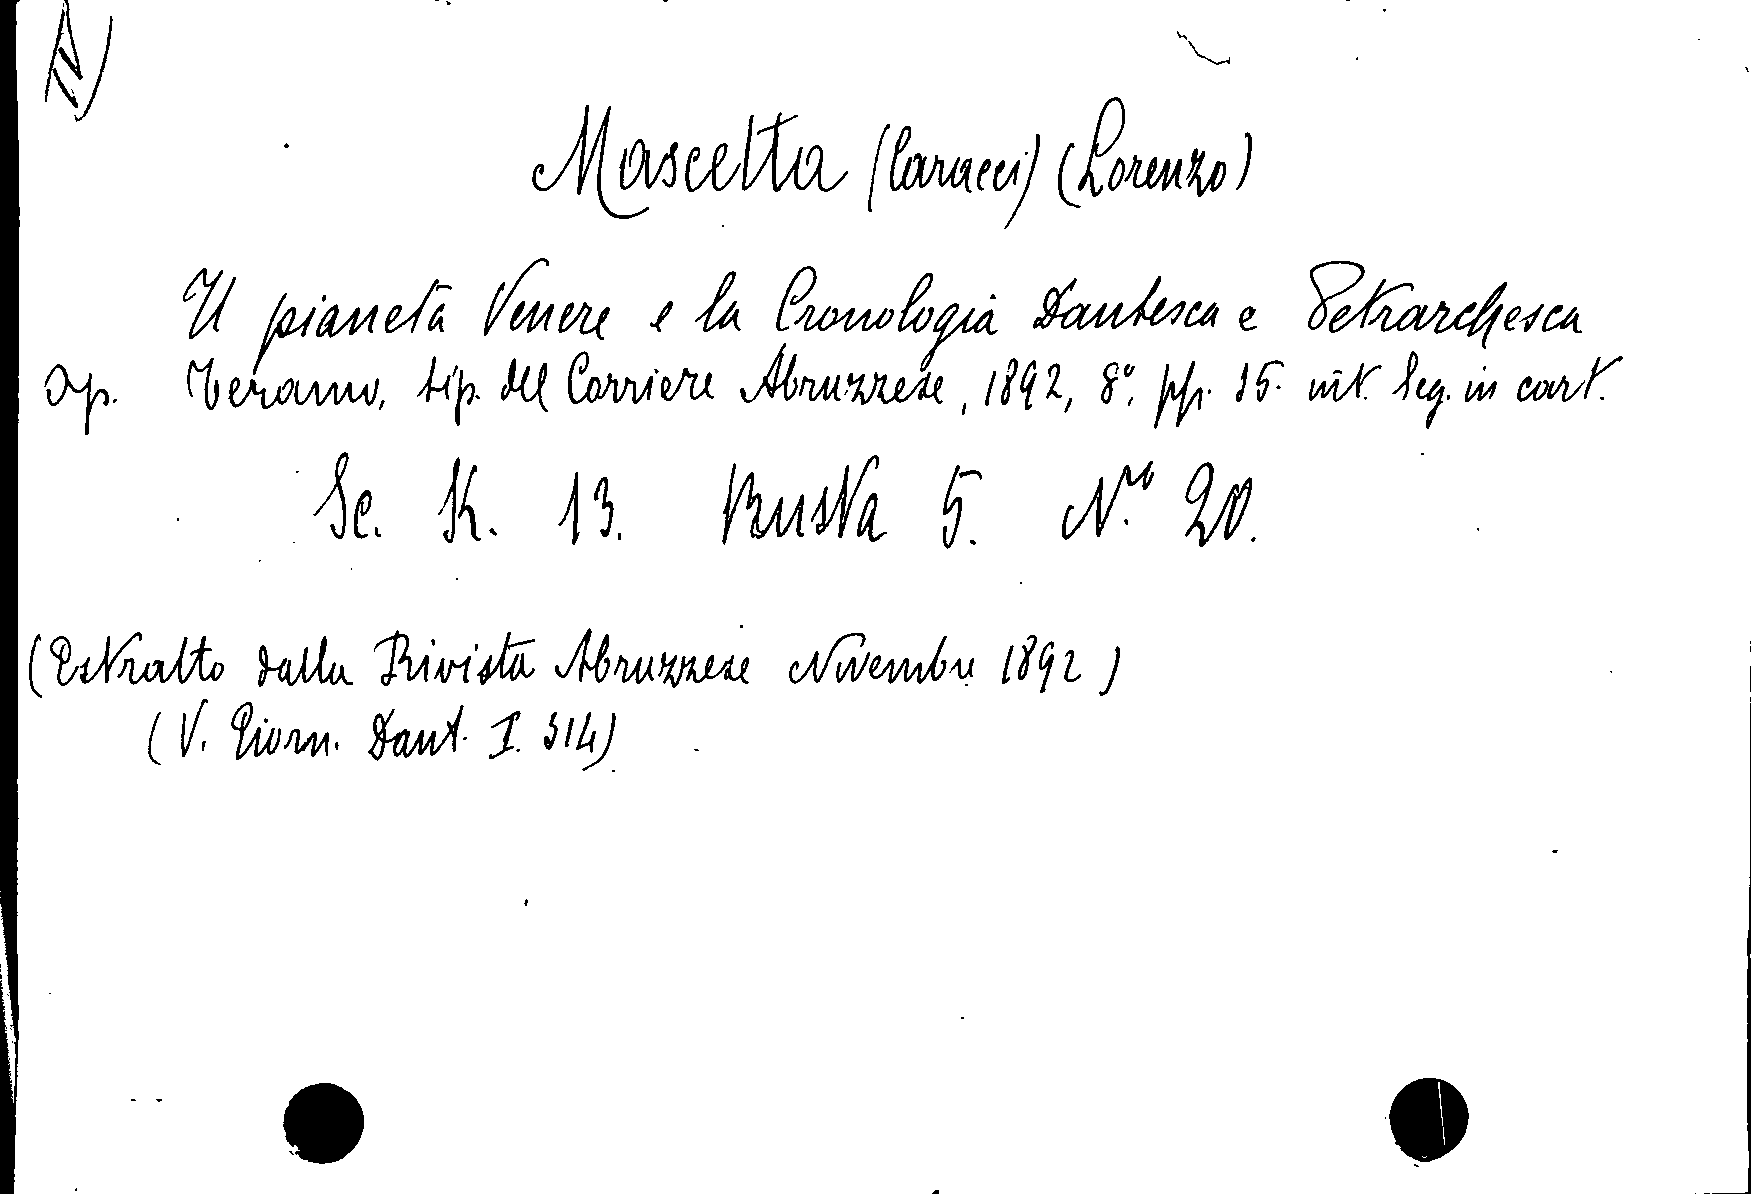 Mascetta (Caracci) (Lorenzo)
Il pianeta Venere e la Cronologia Dantesca e Petrarchesca
Op. Teramo, tip. del Corriere Abruzzese, 1892, 8º, pp. 15. int. leg. in cart.
Sc. K. 13. Busta 5. N.º 20.
(Estratto dalla Rivista Abruzzese Novembre 1892)
(V. Giorn. Dant. I. 314)